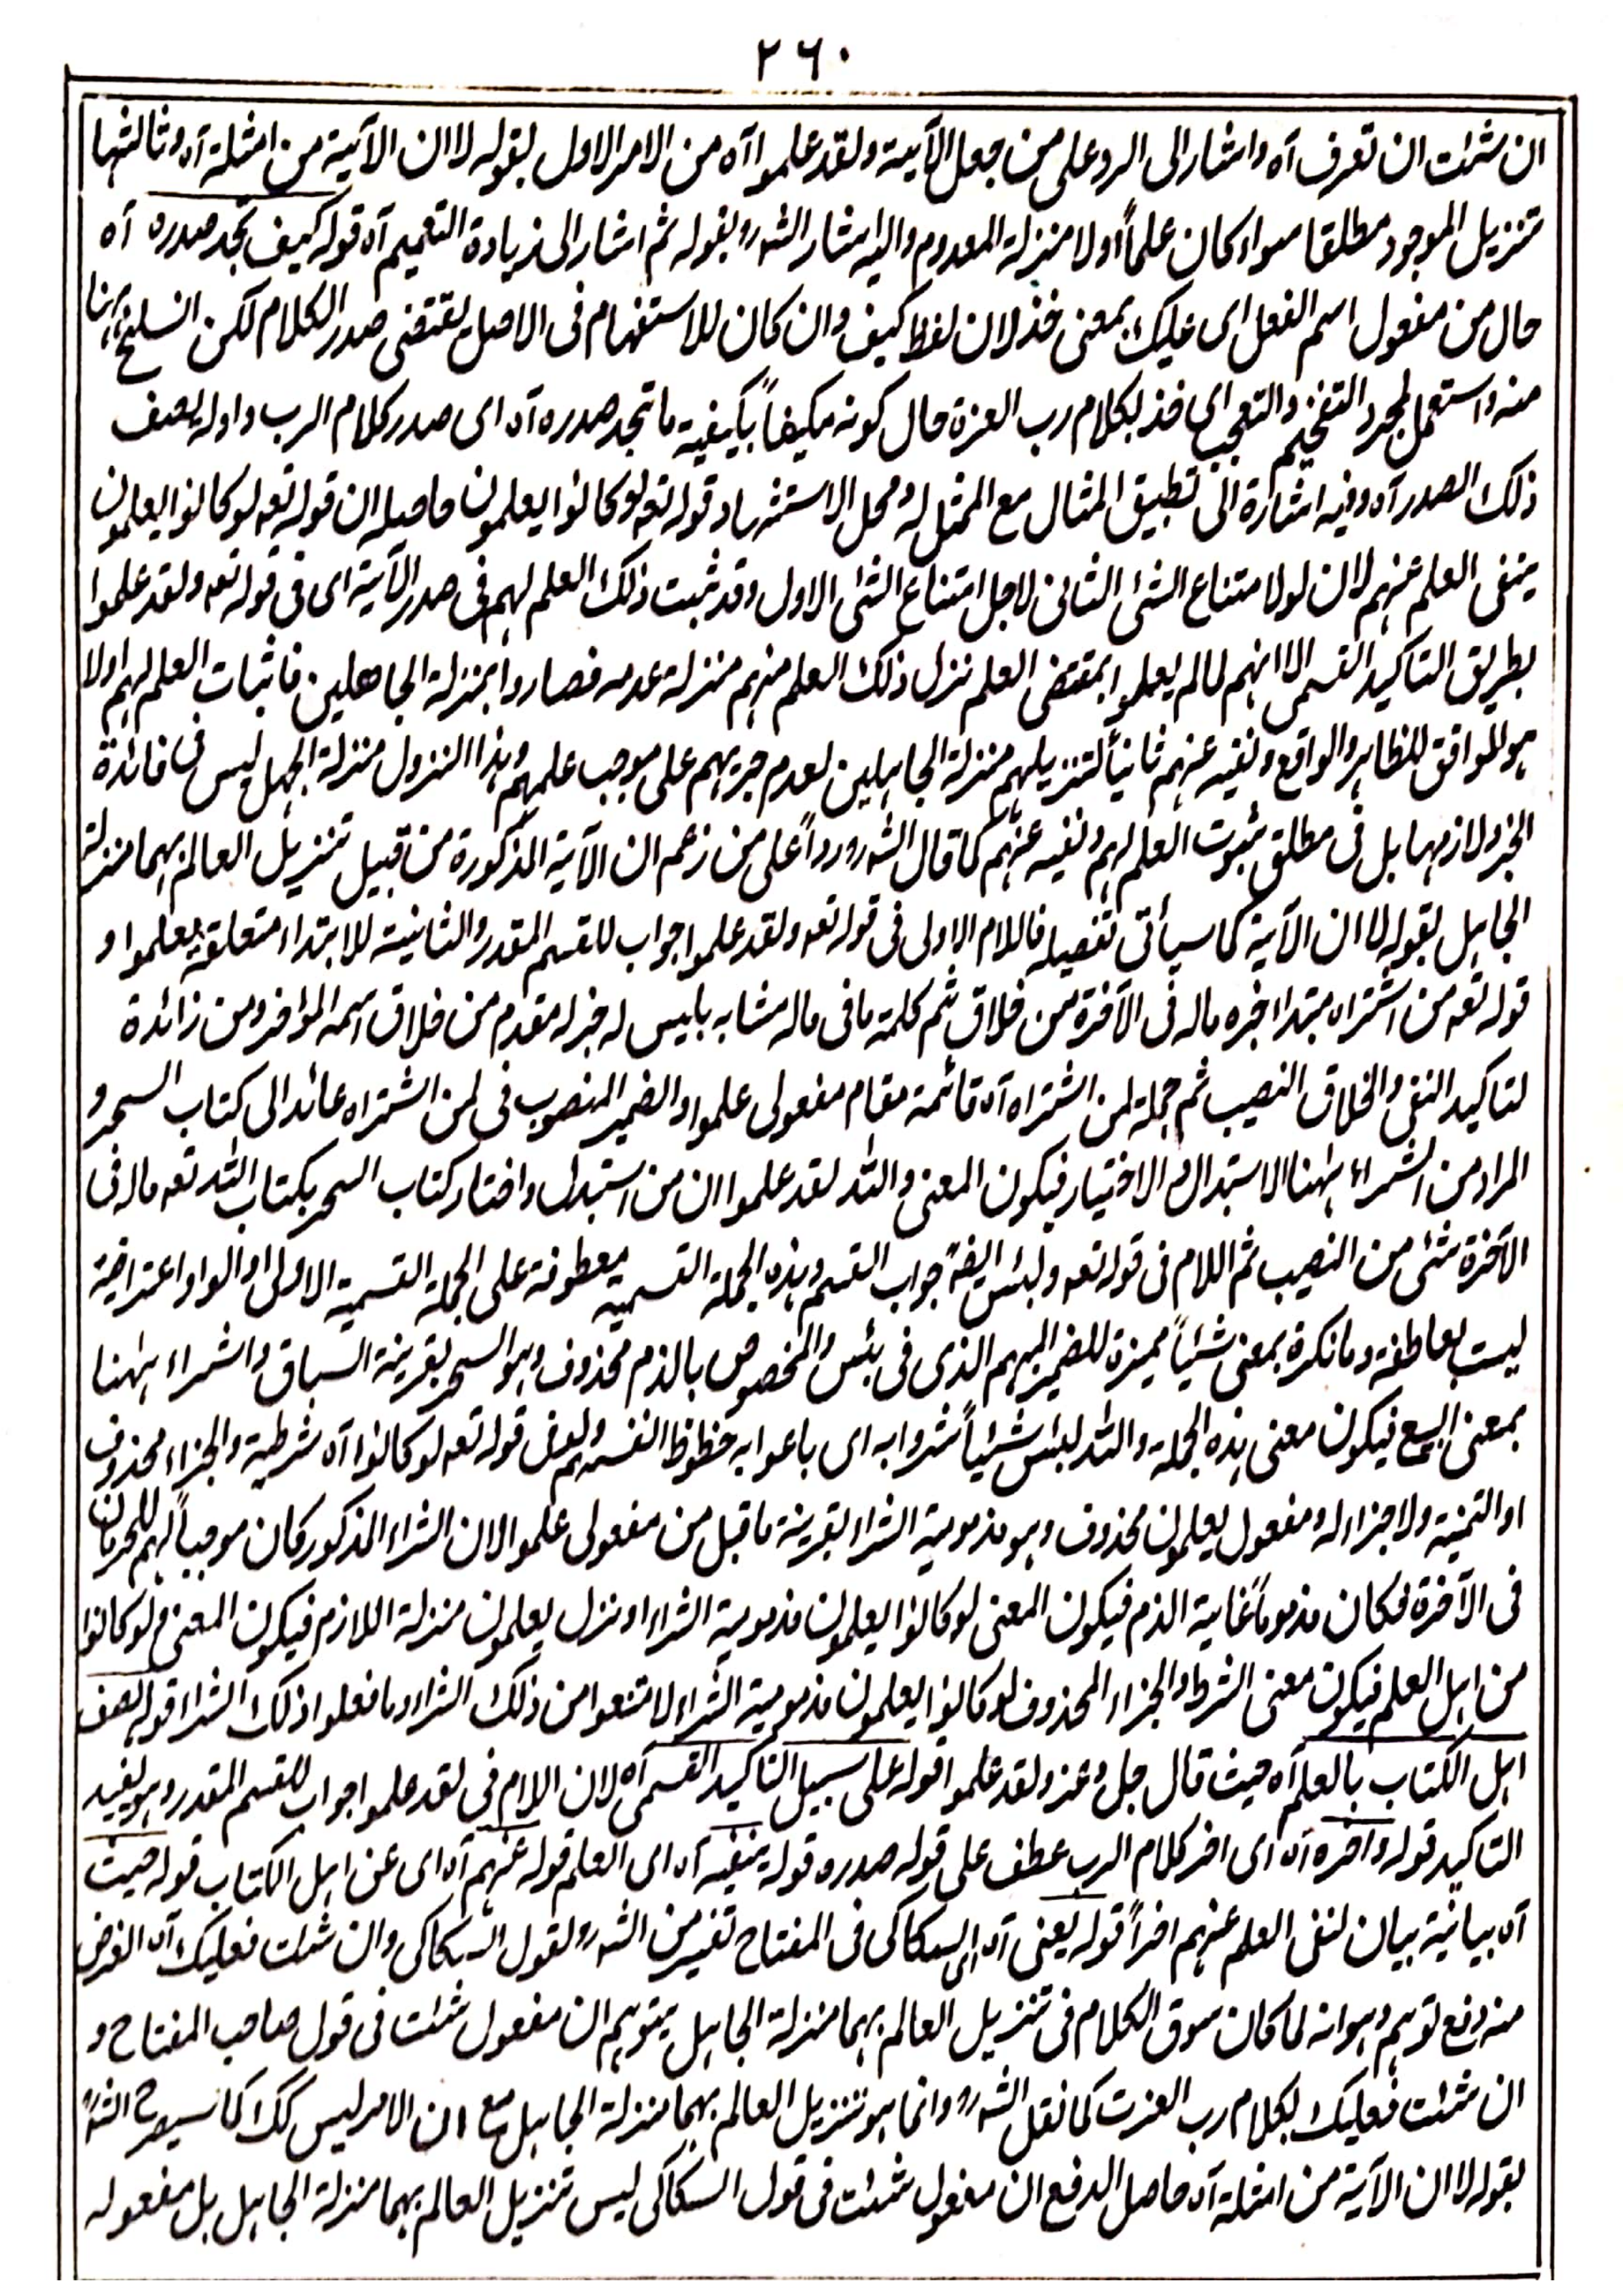 ٢٦٠
ان شئت ان تعرف آه واشار الى الرد على من جعل الآية ولقد علموا آه من الامر الاول بقوله لا ان الآية من امثلة آه وثالثها
تنزيل الموجود مطلقا سواء كان علماً أولا منزلة المعدوم واليه اشار الشه رو بقوله ثم اشار الى زيادة التعميم آه قوله كيف تجد صدره آه
حال من مفعول اسم الفعل اى عليك بمعنى خذ لان لفظ كيف وان كان للاستفهام فى الاصل يقتضى صدر الكلام لكن انسلخ ههنا
منه واستعمل لمجرد التفخيم والتعجب اى خذ بكلام رب العزة حال كونه مكيفاً بكيفية ما تجد صدره آه اى صدر كلام الرب واوله يصف
ذلك الصدر آه وفيه اشارة الى تطبيق المثال مع الممثل له ومحل الاستشهاد قوله تعه لو كانوا يعلمون حاصله ان قوله تعه لو كانوا يعلمون
ينفى العلم عنهم لان لو لامتناع الشئ الثانى لاجل امتناع الشئ الاول وقد ثبت ذلك العلم لهم فى صدر الآية اى فى قوله تعه ولقد علموا
بطريق التاكيد القسمى الا انهم لما لم يعملوا بمقتضى العلم نزل ذلك العلم منهم منزلة عدمه فصاروا بمنزلة الجاهلين فاثبات العلم لهم اولا
هو الموافق للظاهر والواقع ونفيه عنهم ثانياً لتنزيلهم منزلة الجاهلين لعدم جريهم على موجب علمهم وهذا النزول منزلة الجهل ليس فى فائدة
الخبر ولازمها بل فى مطلق ثبوت العلم لهم ونفيه عنهم كما قال الشه رو رداً على من زعم ان الآية المذكورة من قبيل تنزيل العالم بهما منزلة
الجاهل بقوله لا ان الآية كما سيأتى تفصيله فاللام الاولى فى قوله تعه ولقد علموا جواب للقسم المقدر والثانية للابتداء متعلقة بعلموا و
قوله تعه من اشتراه مبتدا خبره ماله فى الآخرة من خلاق ثم كلمة ما فى ماله مشابه بليس له خبر له مقدم من خلاق اسمه المؤخر ومن زائدة
لتاكيد النفى والخلاق النصيب ثم جملة لمن اشتراه آه قائمة مقام مفعولى علموا والضمير المنصوب فى لمن اشتراه عائد الى كتاب السحر و
المراد من الشراء ههنا الاستبدال والاختيار فيكون المعنى والله لقد علموا ان من استبدل واختار كتاب السحر بكتاب الله تعه ماله فى
الآخرة شئ من النصيب ثم اللام فى قوله تعه ولبئس ايضًا جواب القسم وهذه الجملة القسمية معطوفة على الجملة القسمية الاولى او الواو اعتراضية
ليست بعاطفة وما نكرة بمعنى شيئاً مميزة للضمير المبهم الذى فى بئس والمخصوص بالذم محذوف وهو السحر بقرينة السباق واشراء ههنا
بمعنى البيع فيكون معنى هذه الجملة والله لبئس شيئاً شروا به اى باعوا به حظوظ انفسهم ولفظ قوله تعه لو كانوا آه شرطية والجزاء محذوف
او التمنية ولا جزاء له ومفعول يعلمون محذوف وهو مذمومية الشراء بقرينة ما قبل من مفعولى علموا لان الشراء المذكور كان موجباً لهم للحرمان
فى الآخرة فكان مذموماً غاية الذم فيكون المعنى لو كانوا يعلمون مذمومية الشراء او نزل يعلمون منزلة اللازم فيكون المعنى ولو كانوا
من اهل العلم فيكون معنى الشرط والجزاء المحذوف لو كانوا يعلمون مذمومية الشراء لامتنعوا من ذلك الشراء وما فعلوا ذلك الشراء قوله يصف
اهل الكتاب بالعلم آه حيث قال جل وعز ولقد علموا قوله على سبيل التاكيد القسمى آه لان اللام فى لقد علموا جواب للقسم المقدر وهو يفيد
التاكيد قوله واخره آه اى اخر كلام الرب عطف على قوله صدره قوله ينفيه آه اى العلم قوله عنهم آه اى عن اهل الكتاب قوله حيث
آه بيانية بيان لنفى العلم عنهم اخراً قوله يعنى آه اى السكاكى فى المفتاح تفسير من الشه رو لقول السكاكى وان شئت فعليك آه الغرض
منه دفع توهم وهو انه لما كان سوق الكلام فى تنزيل العالم بهما منزلة الجاهل يتوهم ان مفعول شئت فى قول صاحب المفتاح و
ان شئت فعليك بكلام رب العزت كما نقل الشه رو وانما هو تنزيل العالم بهما منزلة الجاهل مع ان الامر ليس كك كما سيصرح الشه
بقوله لا ان الآية من امثلة آه حاصل الدفع ان مفعول شئت فى قول السكاكى ليس تنزيل العالم بهما منزلة الجاهل بل مفعوله